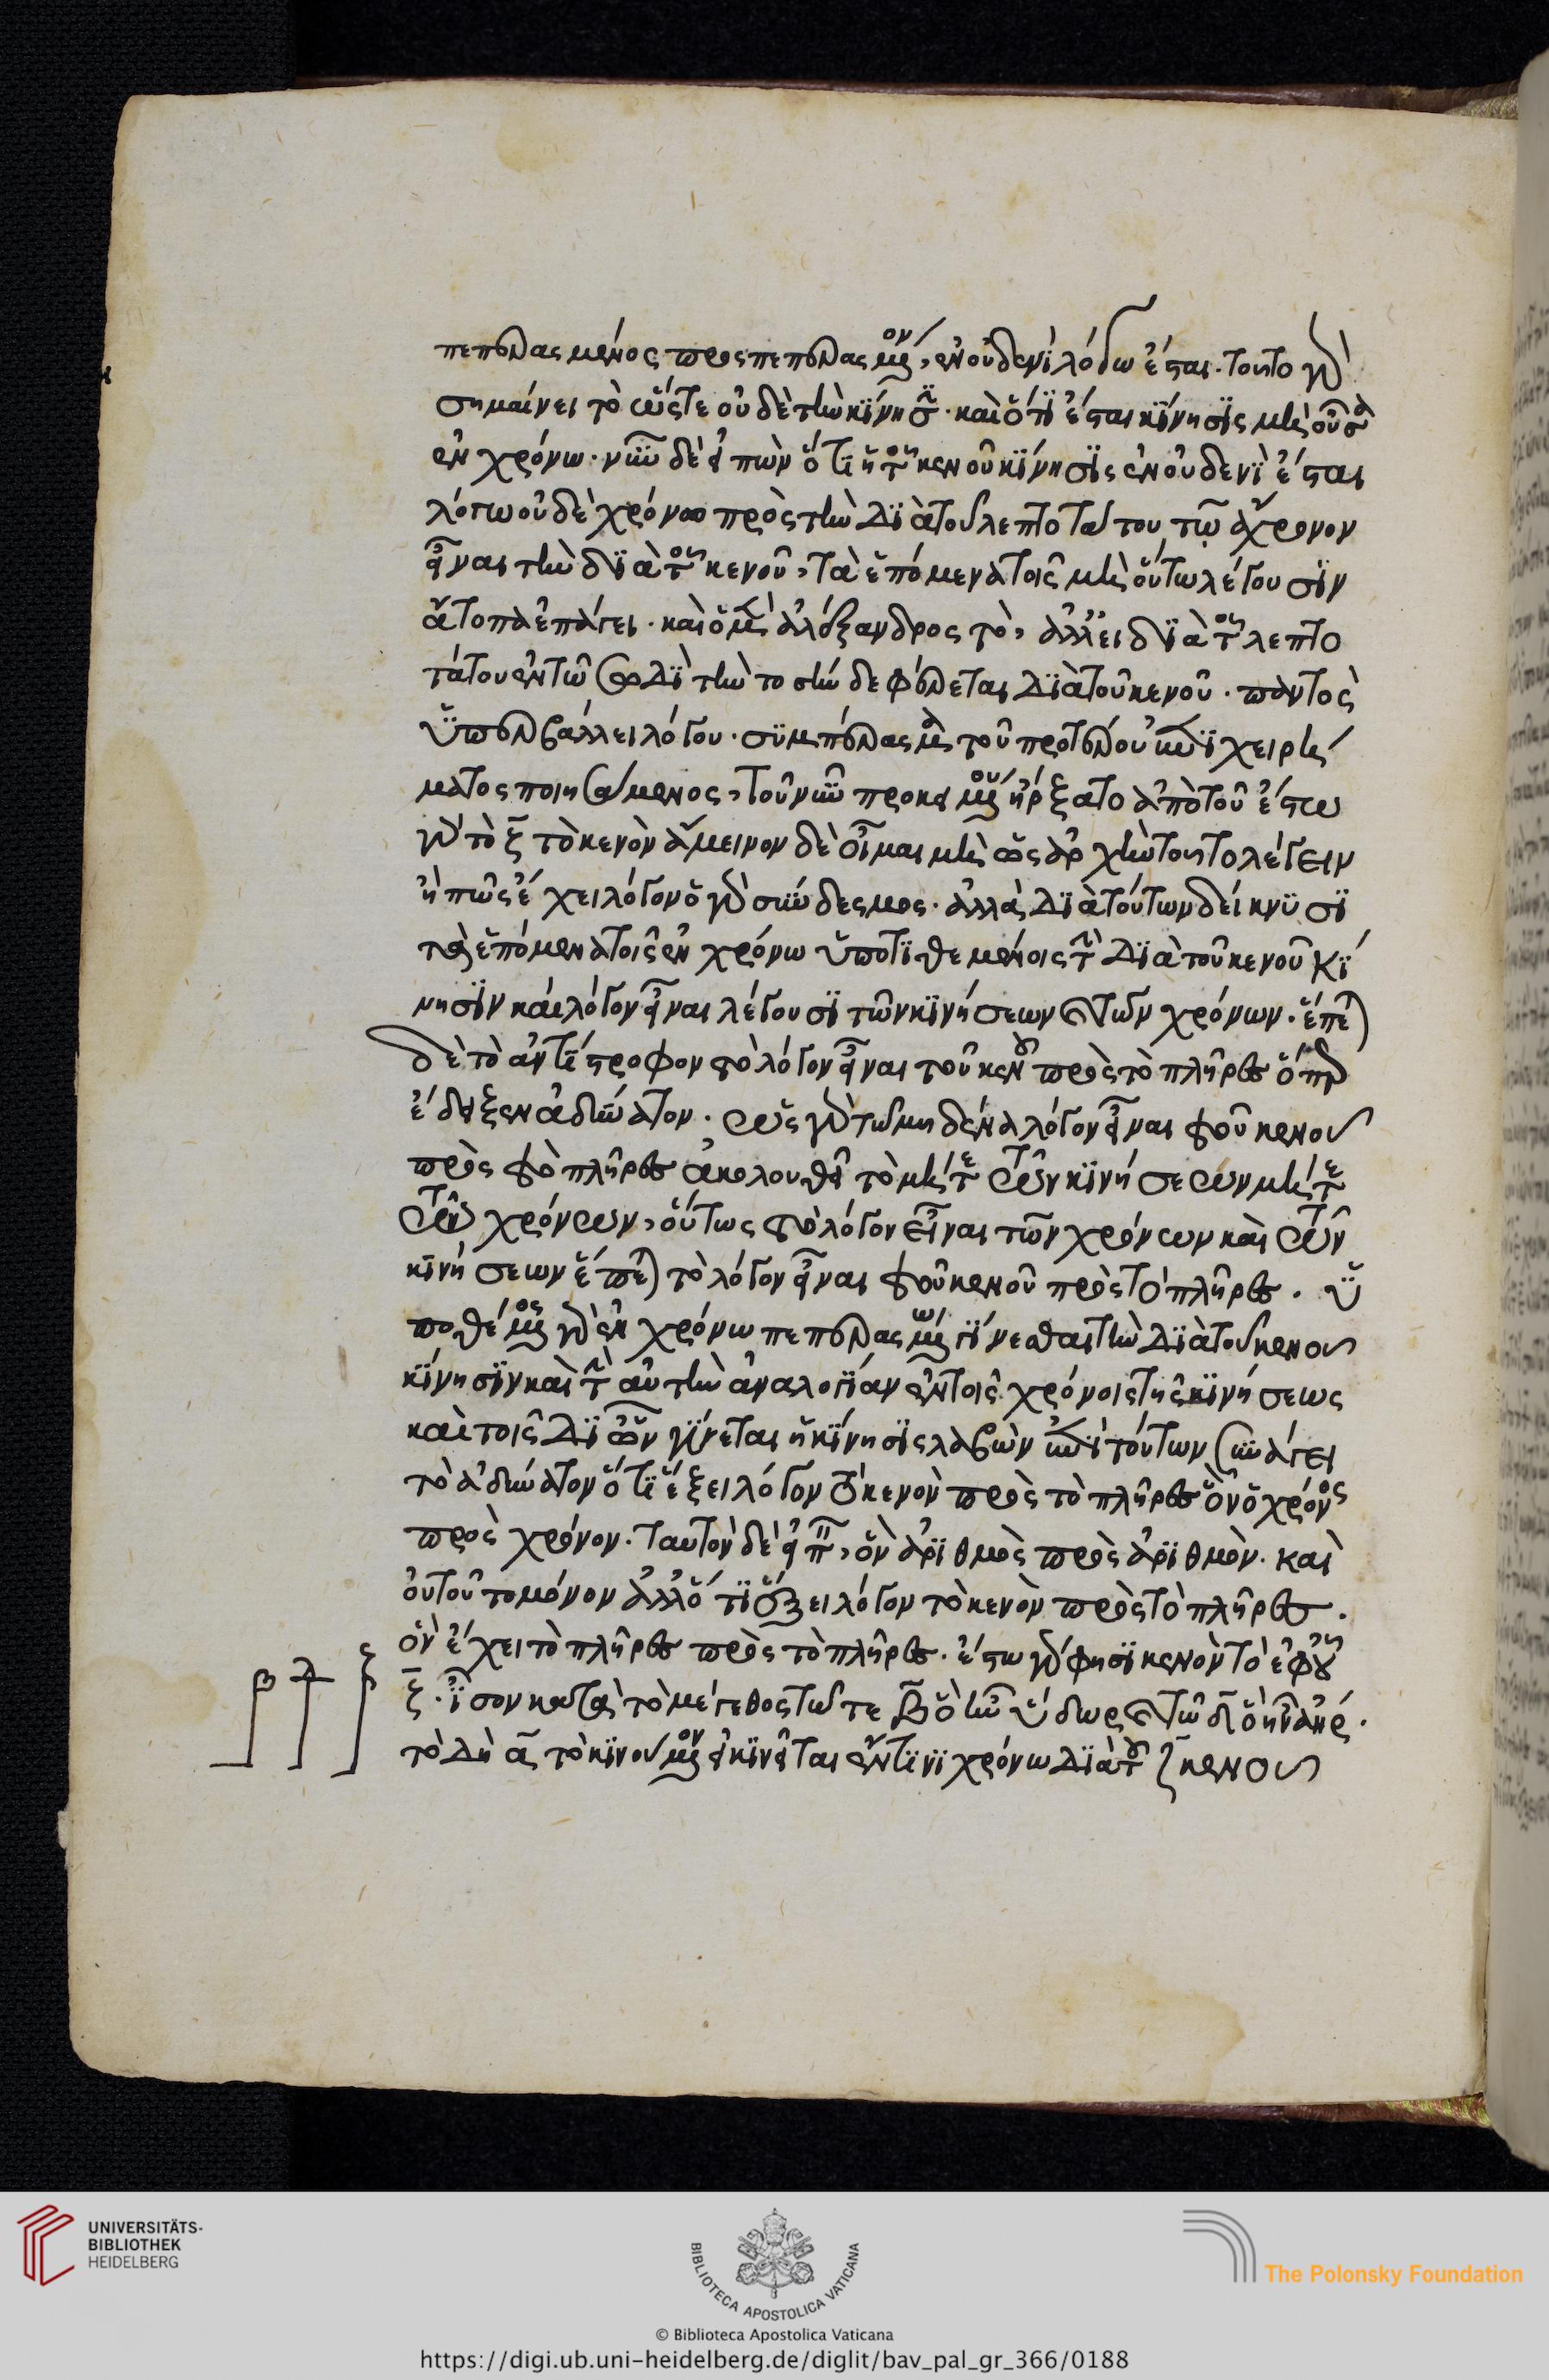 πεπερασμένος πρὸς πεπερασμένον, ἐν οὐδενὶ λόγω ἔσται. τοῦτο γὰρ
σημαίνει τὸ ὥστε οὐδὲ τὴν κίνησιν. καὶ ὅτι ἔσται κίνησις μὴ οὖσα
ἐν χρόνω. νῦν δὲ εἰπὼν ὅτι ἡ τοῦ κενοῦ κίνησις ἐν οὐδενὶ ἔσται
λόγω οὐδὲ χρόνω πρὸς τὴν διὰ τοῦ λεπτοτάτου, τῶ ἄχρονον
εἶναι τὴν διὰ τοῦ κενοῦ, τὰ ἑπόμενα τοῖς μὴ οὕτω λέγουσιν
ἄτοπα ἐπάγει. καὶ ὁ μὲν ἀλέξανδρος τὸ, ἀλλ' εἰ διὰ τοῦ λεπτο
τάτου ἐν τοσωδὶ τὴν τοσήνδε φέρεται διὰ τοῦ κενοῦ. παντὸς
ὑπερβάλλει λόγου. συμπέρασμα τοῦ προτέρου ἐπιχειρή
ματος ποιησάμενος, τοῦ νῦν προκειμένου ἤρξατο ἀπὸ τοῦ ἔστω
γὰρ τὸ ζ̄ τὸ κενὸν ἄμεινον δὲ οἶμαι μὴ ὡς ἀρχὴν τοῦτο λέγειν
ἢ πῶς ἔχει λόγον ὁ γὰρ σύνδεσμος. ἀλλὰ διὰ τούτων δείκνυσι
τὰ ἑπόμενα τοῖς ἐν χρόνω ὑποτιθεμένοις τὴν διὰ τοῦ κενοῦ κί
νησιν καὶ λόγον εἶναι λέγουσι τῶν κινήσεων καὶ τῶν χρόνων. ἕπεται
δὲ τὸ ἀντίστροφον τὸ λόγον εἶναι τοῦ κενοῦ πρὸς τὸ πλῆρες ὅπερ
ἔδειξεν ἀδύνατον. ὡς γὰρ τῶ μηδένα λόγον εἶναι τοῦ κενοῦ
πρὸς τὸ πλῆρες ἀκολουθεῖ τὸ μήτε τῶν κινήσεων μήτε
τῶν χρόνων, οὕτως τὸ λόγον εἶναι τῶν χρόνων καὶ τῶν
κινήσεων ἕπεται τὸ λόγον εἶναι τοῦ κενοῦ πρὸς τὸ πλῆρες. ὑ
ποθέμενος γὰρ ἐν χρόνω πεπερασμένω γίνεσθαι τὴν διὰ τοῦ κενοῦ
κίνησιν καὶ τὴν αὐτὴν ἀναλογίαν ἐν τοῖς χρόνοις τῆς κινήσεως
καὶ τοῖς δι' ὧν γίνεται ἡ κίνησις λαβὼν ἐπὶ τούτων συνάγει
τὸ ἀδύνατον ὅτι ἕξει λόγον τὸ κενὸν πρὸς τὸ πλῆρες ὃν ὁ χρόνος
πρὸς χρόνον. ταυτὸν δὲ εἰπεῖν, ὃν ἀριθμὸς πρὸς ἀριθμὸν. καὶ
οὐ τοῦτο μόνον ἀλλ' ὅτι ἕξει λόγον τὸ κενὸν πρὸς τὸ πλῆρες.
ὃν ἔχει τὸ πλῆρες πρὸς τὸ πλῆρες. ἔστω γὰρ φησὶ κενὸν τὸ ἐφ' οὗ
ζ̄. ἴσον κατὰ τὸ μέγεθος τῶ τε β̄ ὃ ἦν ὕδωρ καὶ τῶ δ̄ ὃ ἦν ἀήρ.
τὸ δὴ ᾱ τὸ κινούμενον εἰ κινεῖται ἔν τινι χρόνω διὰ τοῦ ζ̄ κενοῦ
β δ ζ
UNIVERSITÄTS-
BIBLIOTHEK
HEIDELBERG
BIBLIOTECA APOSTOLICA VATICANA
© Biblioteca Apostolica Vaticana
The Polonsky Foundation
https://digi.ub.uni-heidelberg.de/diglit/bav_pal_gr_366/0188